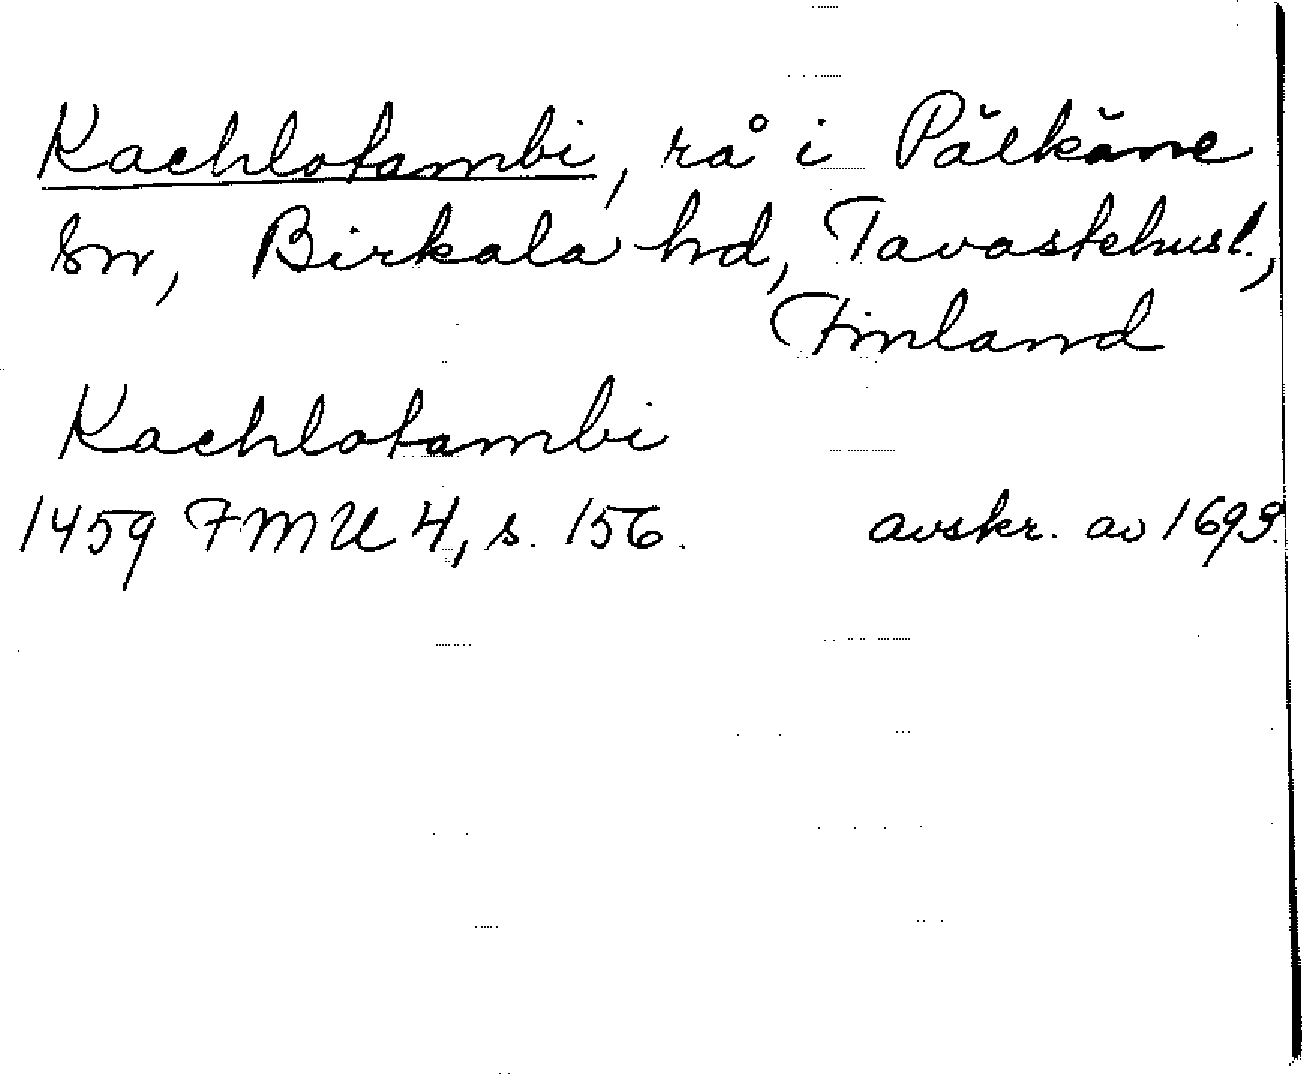 Kachlotambi, rå i Pälkäne
sn, Birkala hd, Tavastehusl.,
Finland
Kachlotambi
1459 FMU 4, s. 156. avskr. av 1699.